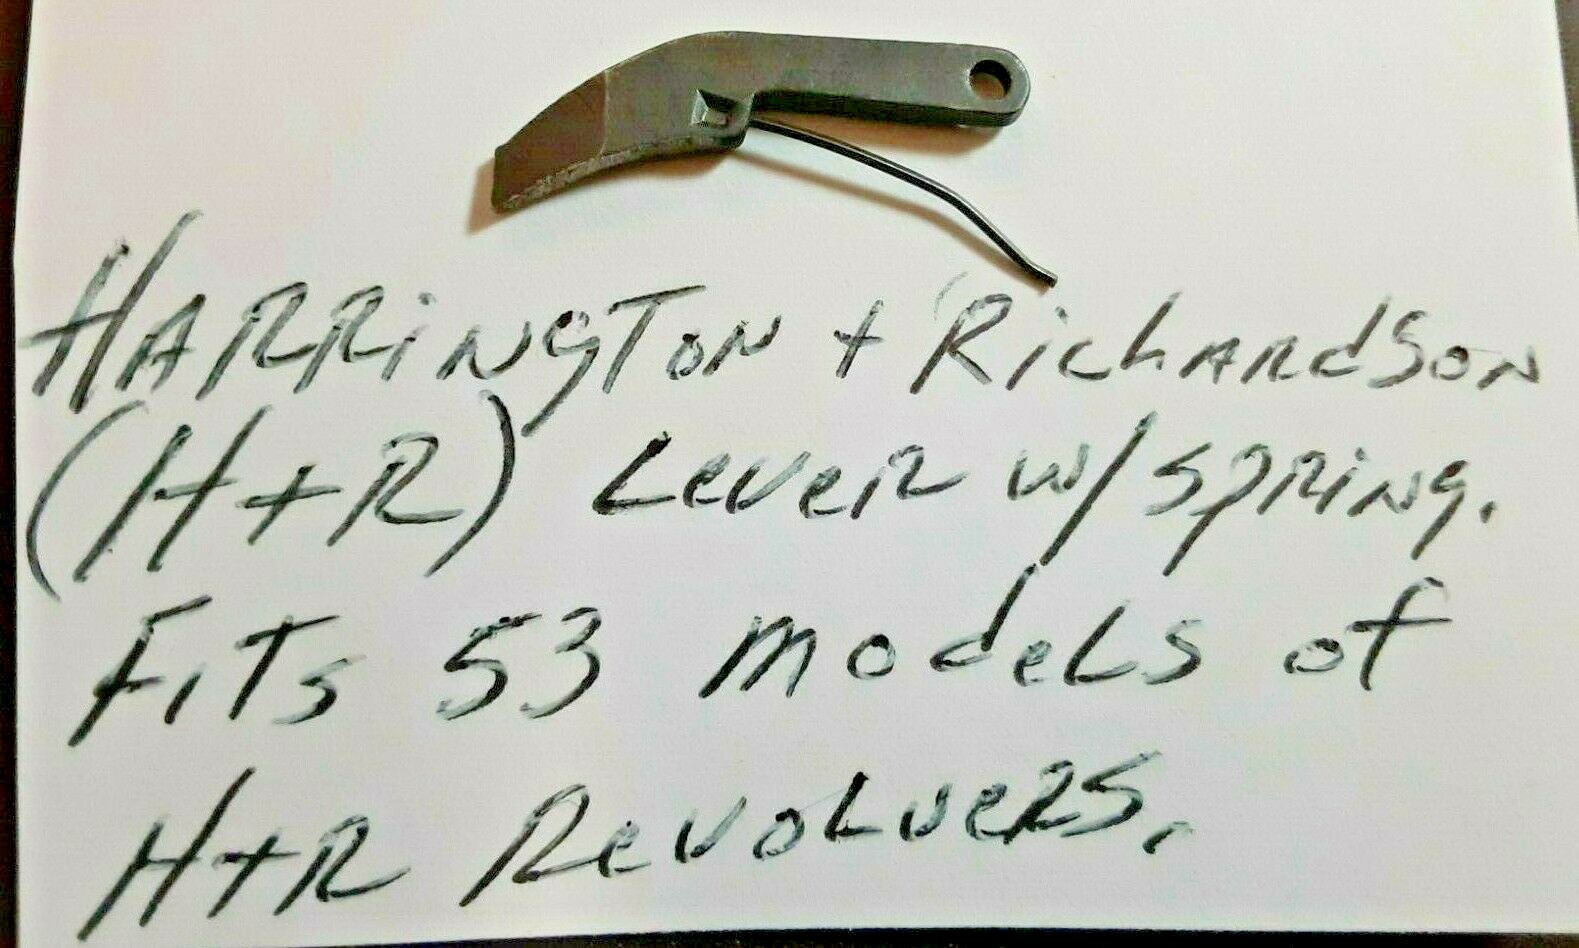 HARRiNgTON + RichARdSON
(H+R) LeveR w/ SpRiNg.
FiTs 53 models of
H+R RevoLveRS.